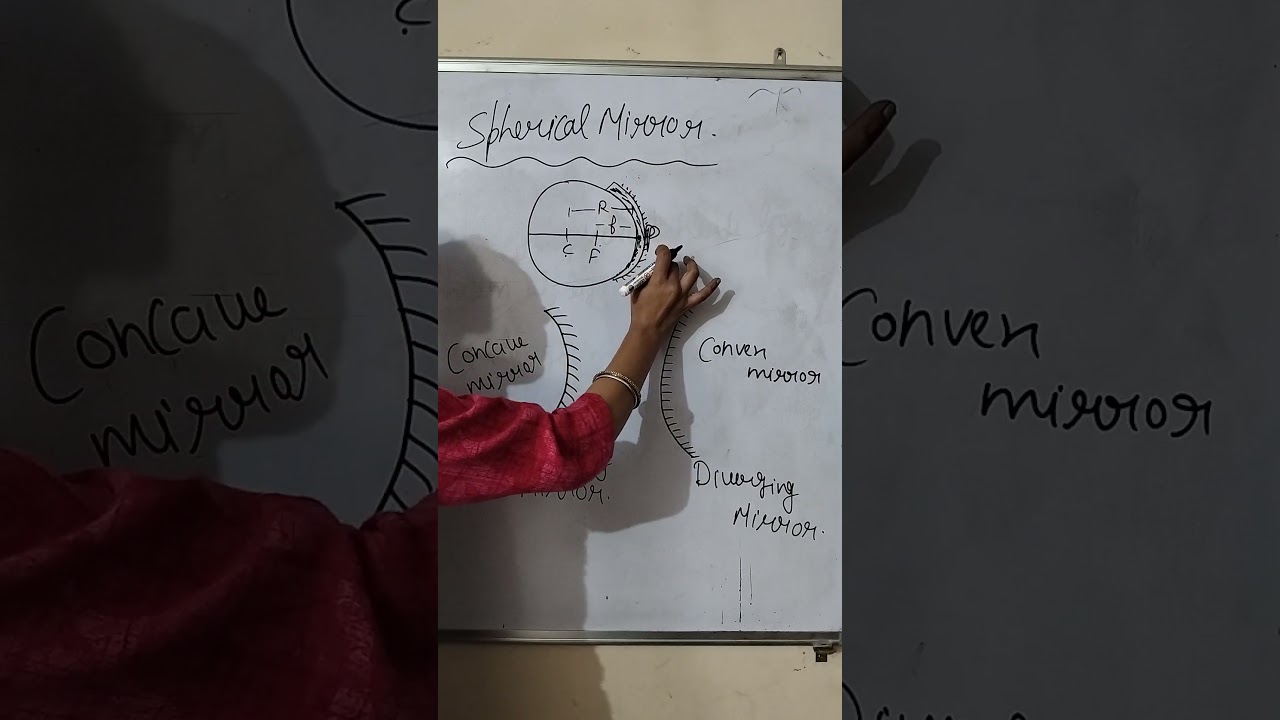 Spherical Mirror.
R
f
C F
P
Concave
mirror
Convex
mirror
Mirror.
Diverging
Mirror.